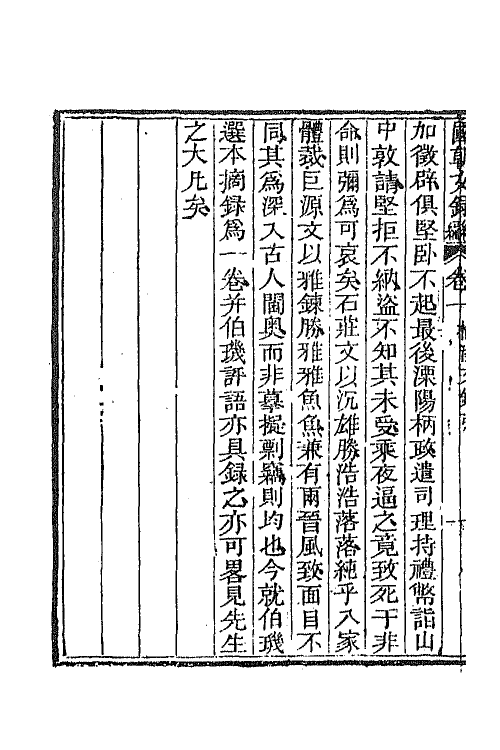 國朝文錄續編卷一
加徵辟俱堅卧不起最後溧陽柄政遣司理持禮幣詣山
中敦請堅拒不納盜不知其未受乘夜逼之竟致死于非
命則彌爲可哀矣石莊文以沉雄勝浩浩落落純乎八家
體裁巨源文以雅鍊勝雅雅魚魚兼有兩晉風致面目不
同其爲深入古人閫奥而非摹擬剽竊則均也今就伯璣
選本摘録爲一卷并伯璣評語亦具録之亦可畧見先生
之大凡矣